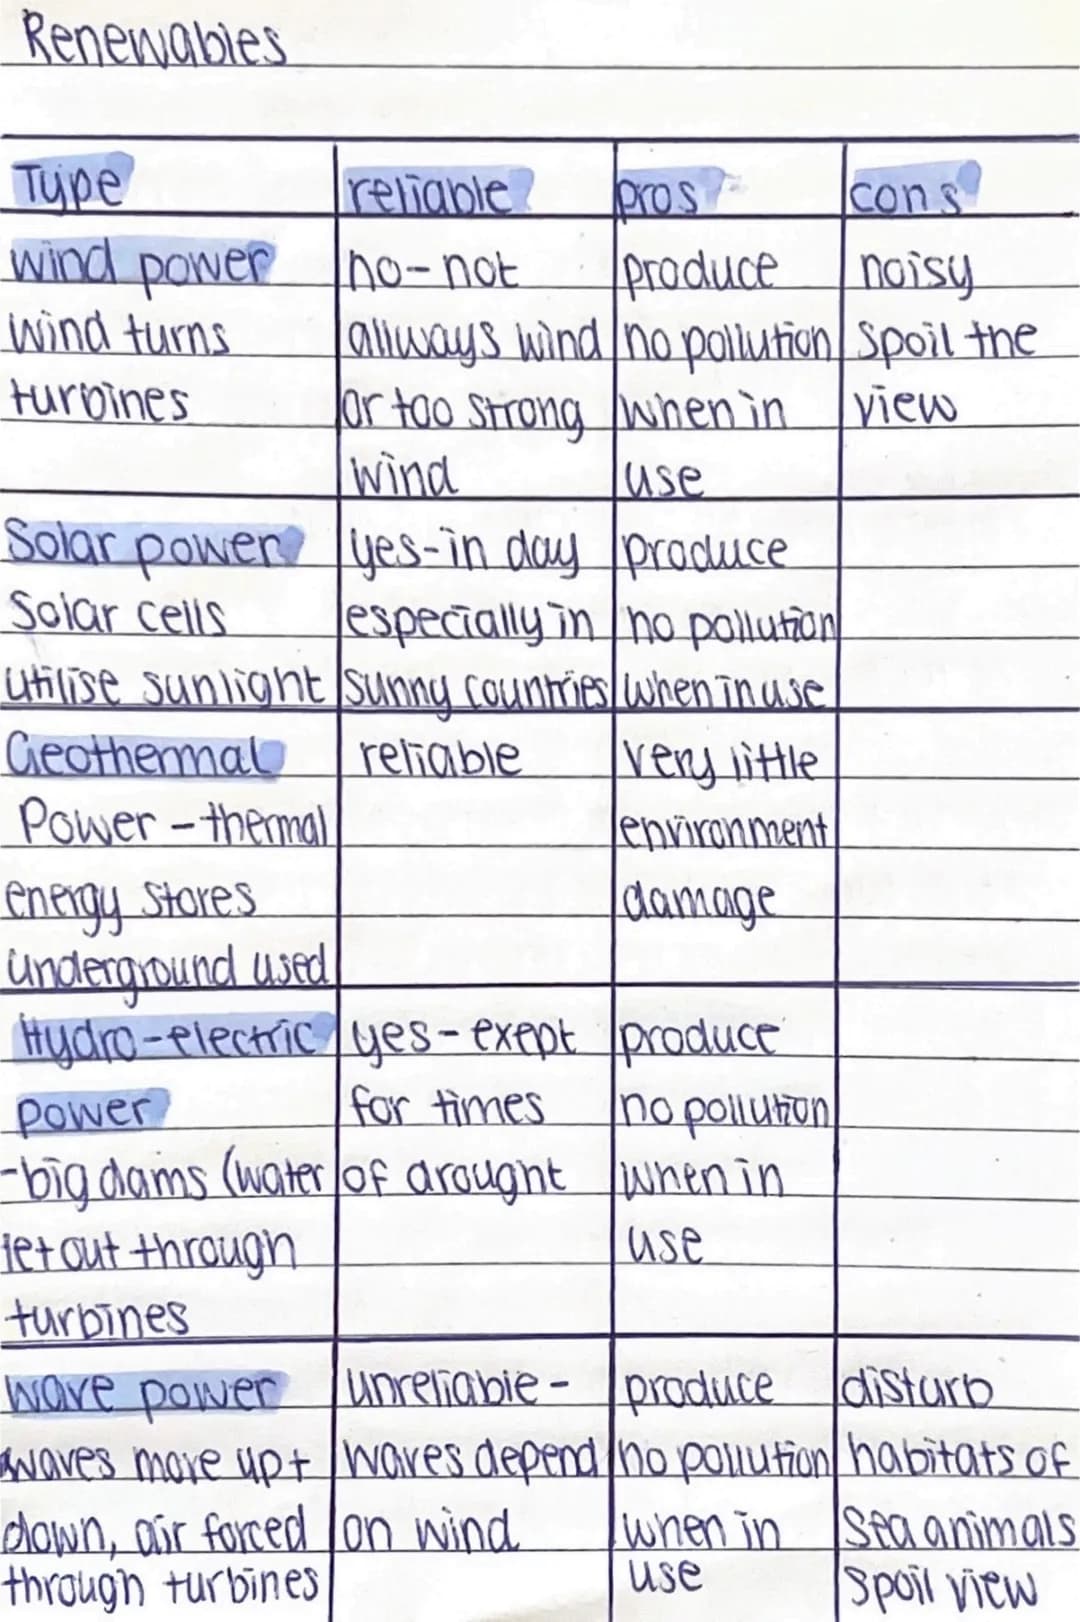 Renewables
Type reliable? pros? cons?
wind power no-not produce noisy
wind turns allways wind no pollution spoil the
turbines or too strong when in view
wind use
Solar power yes-in day produce
Solar cells especially in no pollution
utilise sunlight sunny countries when in use
Geothermal reliable very little
Power - thermal environment
energy stores damage
underground used
Hydro-electric yes-exept produce
power for times no pollution
-big dams (water of drought when in
let out through use
turbines
wave power unreliable- produce disturb
waves move up+ waves depend no pollution habitats of
down, air forced on wind when in sea animals
through turbines use spoil view